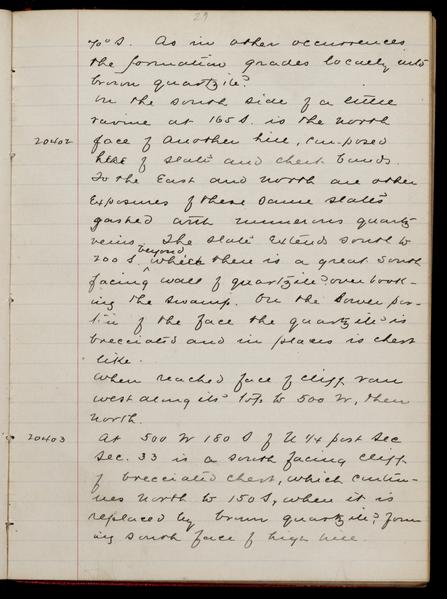 29
70° S. As in other occurrences
the formation grades locally into
brown quartzite.
On the south side of a little
ravine at 165 S. is the north
20402 face of another hill, composed
here of slate and chert bands.
To the East and north are other
exposures of these same slates
gashed with numerous quartz
veins. The slate extends south to
200 S. beyond which there is a great south
facing wall of quartzite overlook-
ing the swamp. On the lower por-
tion of the face the quartzite is
brecciated and in places is chert
like.
When reached face of cliff ran
west along its top to 500 W, then
north.
20403 At 500 W 180 S of N 1/4 post Sec
Sec. 33 is a south facing cliff
of brecciated chert, which contin-
ues north to 150 S, when it is
replaced by brown quartzite, form
ing south face of high hill.